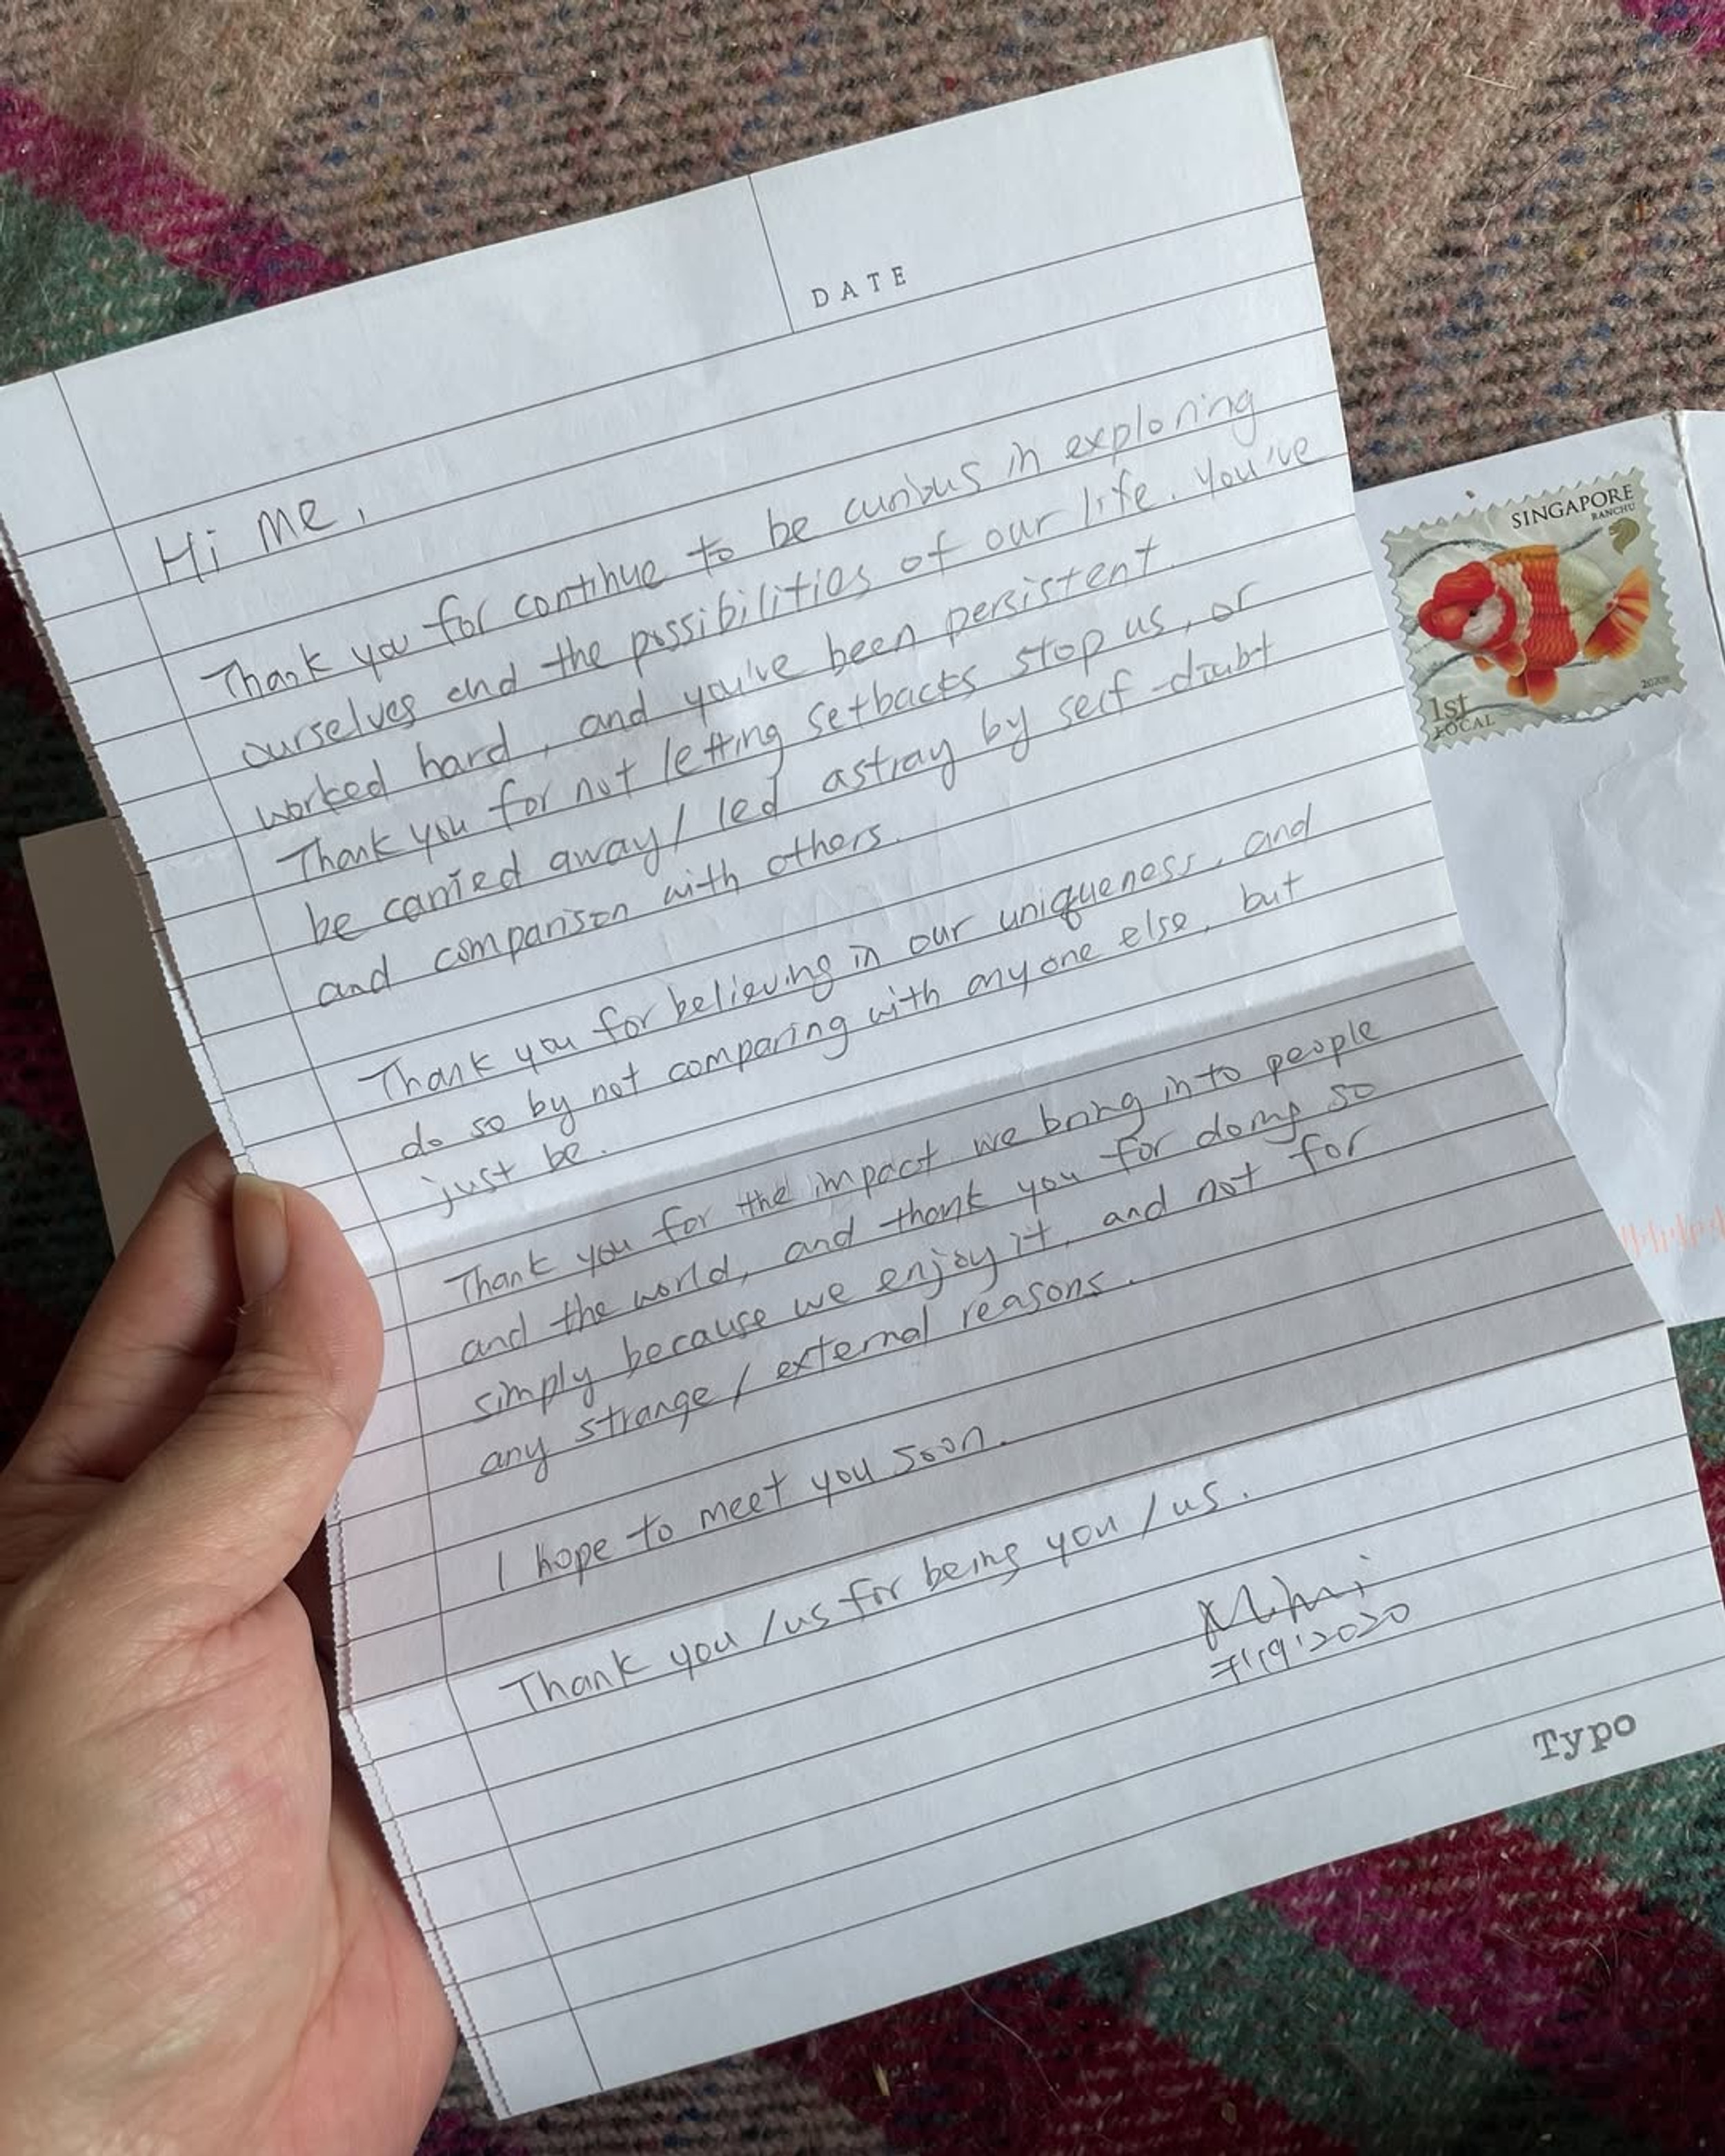 DATE
Hi me,
Thank you for continue to be curious in exploring
ourselves and the possibilities of our life. You've
worked hard, and you've been persistent.
Thank you for not letting setbacks stop us, or
be carried away/ led astray by self-doubt
and comparison with others.
Thank you for believing in our uniqueness, and
do so by not comparing with anyone else, but
just be.
Thank you for the impact we bring into people
and the world, and thank you for doing so
simply because we enjoy it, and not for
any strange / external reasons.
I hope to meet you soon.
Thank you /us for being you /us.
7'19'2020
Typo
SINGAPORE
RANCHU
1st
LOCAL